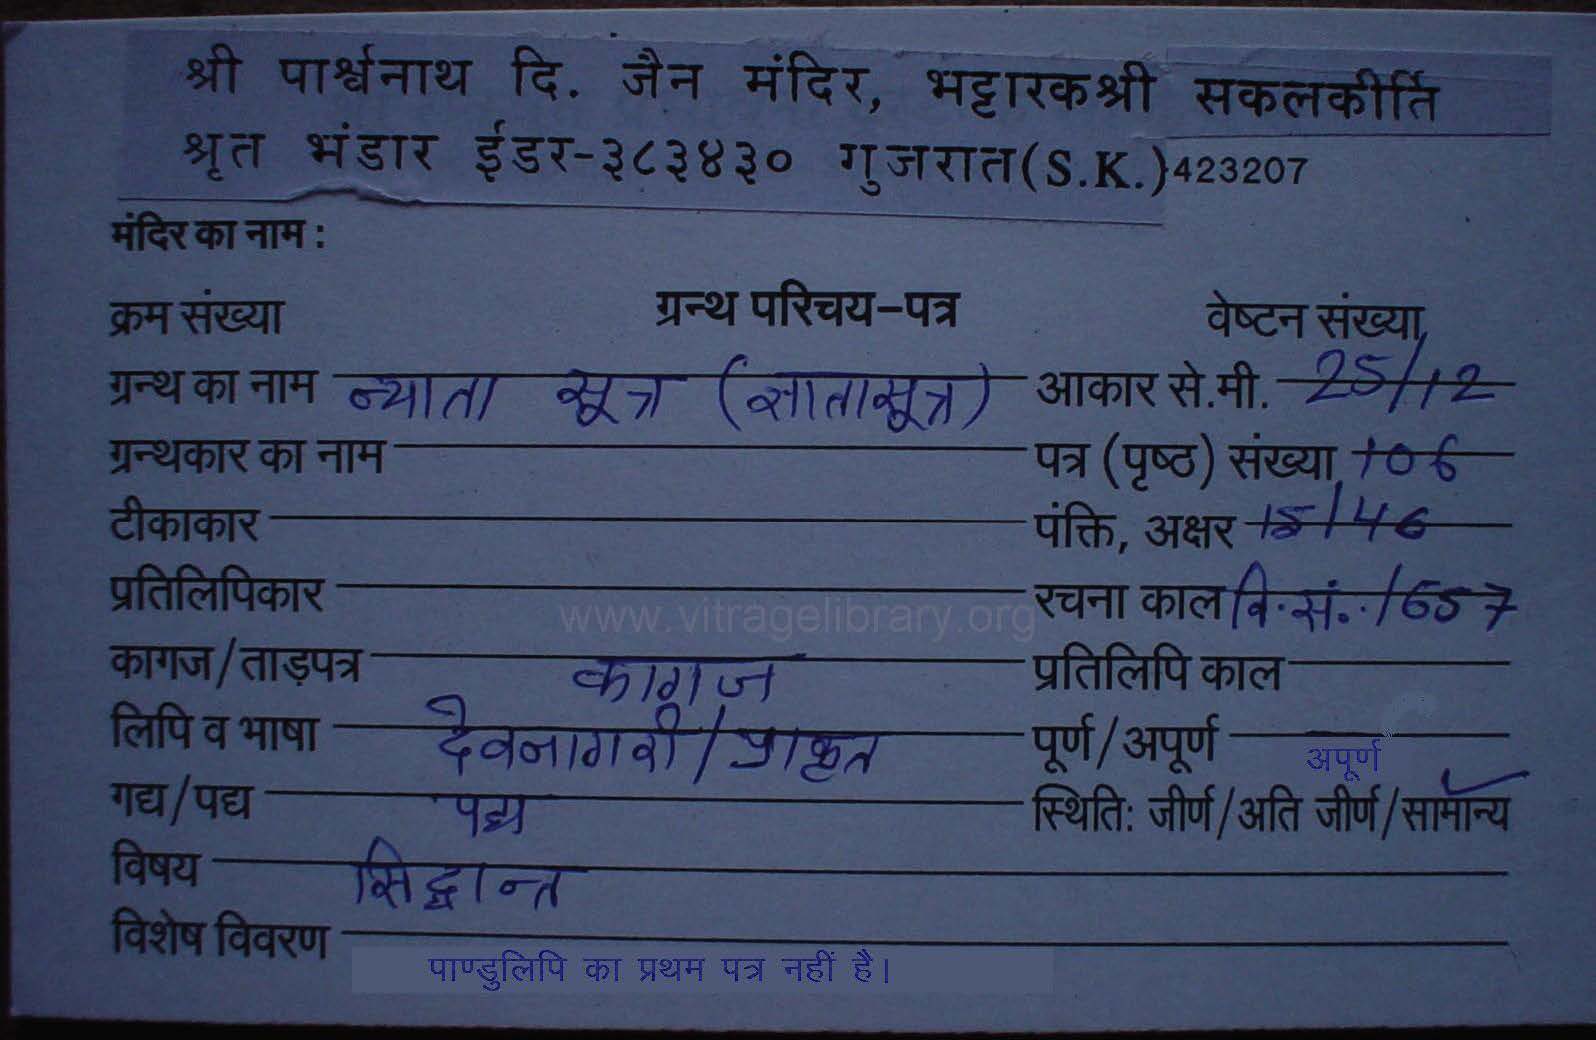 श्री पार्श्वनाथ दि. जैन मंदिर, भट्टारकश्री सकलकीर्ति
श्रृत भंडार ईडर-३८३४३० गुजरात(S.K.)423207
मंदिर का नाम :
क्रम संख्या ग्रन्थ परिचय-पत्र वेष्टन संख्या
ग्रन्थ का नाम न्याता सूत्र (ज्ञातासूत्र) आकार से.मी. 25/12
ग्रन्थकार का नाम पत्र (पृष्ठ) संख्या 106
टीकाकार पंक्ति, अक्षर 15/46
प्रतिलिपिकार रचना काल वि.सं. 1657
www.vitragelibrary.org
कागज/ताड़पत्र कागज प्रतिलिपि काल
लिपि व भाषा देवनागरी/प्राकृत पूर्ण/अपूर्ण अपूर्ण
गद्य/पद्य पद्य स्थिति: जीर्ण/अति जीर्ण/सामान्य
विषय सिद्धान्त
विशेष विवरण
पाण्डुलिपि का प्रथम पत्र नहीं है।